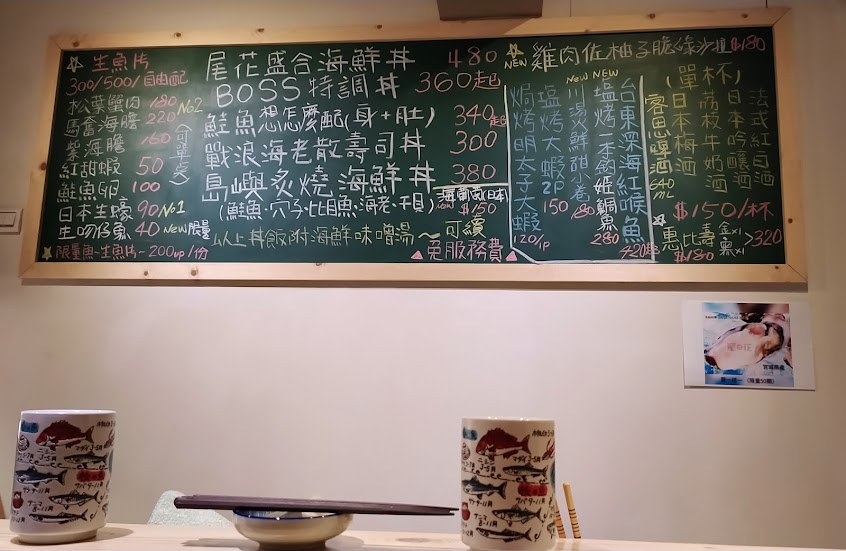 ☆生魚片
300/500/自由配
松葉蟹肉 180 No2
馬糞海膽 220
紫海膽 160
(可單点)
紅甜蝦 50
鮭魚卵 100
日本生蠔 90 No1
生吻仔魚 40 New 限量
☆限量魚~生魚片~200up/份
尾花盛合海鮮丼 480
BOSS特調丼 360起
鮭魚想怎麼配(身+肚) 340起
戰浪海老散壽司丼 300
島嶼炙燒海鮮丼 380
(鮭魚·穴子·比目魚·海老·干貝)
海葡萄(日本) $150
以上丼飯附海鮮味噌湯~可續
▲免服務費▲
☆NEW 雞肉佐柚子脆綠沙拉 $180
台東深海紅喉魚 420起
NEW 塩烤一本釣姫鯛魚 280
New 川燙鮮甜小卷 180
塩烤大蝦2P 150
焗烤明太子大蝦 120/1P
(單杯)
法式紅白酒
日本吟釀酒
荔枝牛奶酒
日本梅酒
$150/杯
客思啤酒 640ML
☆惠比壽 $180
金x1
黑x1
>320
宮城県產
(限量50顆)
マダイ
サバ